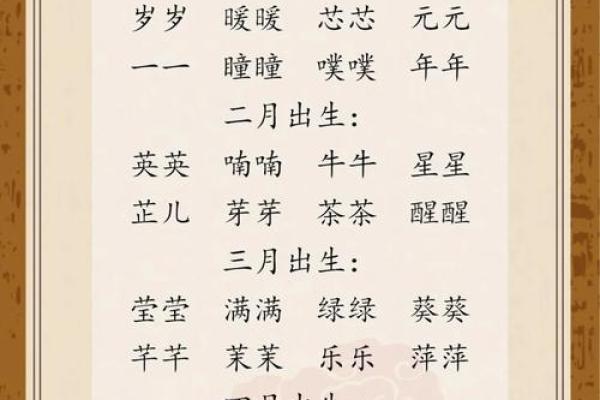 岁岁 暖暖 芯芯 元元
一一 瞳瞳 噗噗 年年
二月出生：
英英 喃喃 牛牛 星星
芷儿 芽芽 茶茶 醒醒
三月出生：
莹莹 满满 绿绿 葵葵
芊芊 茉茉 乐乐 萍萍